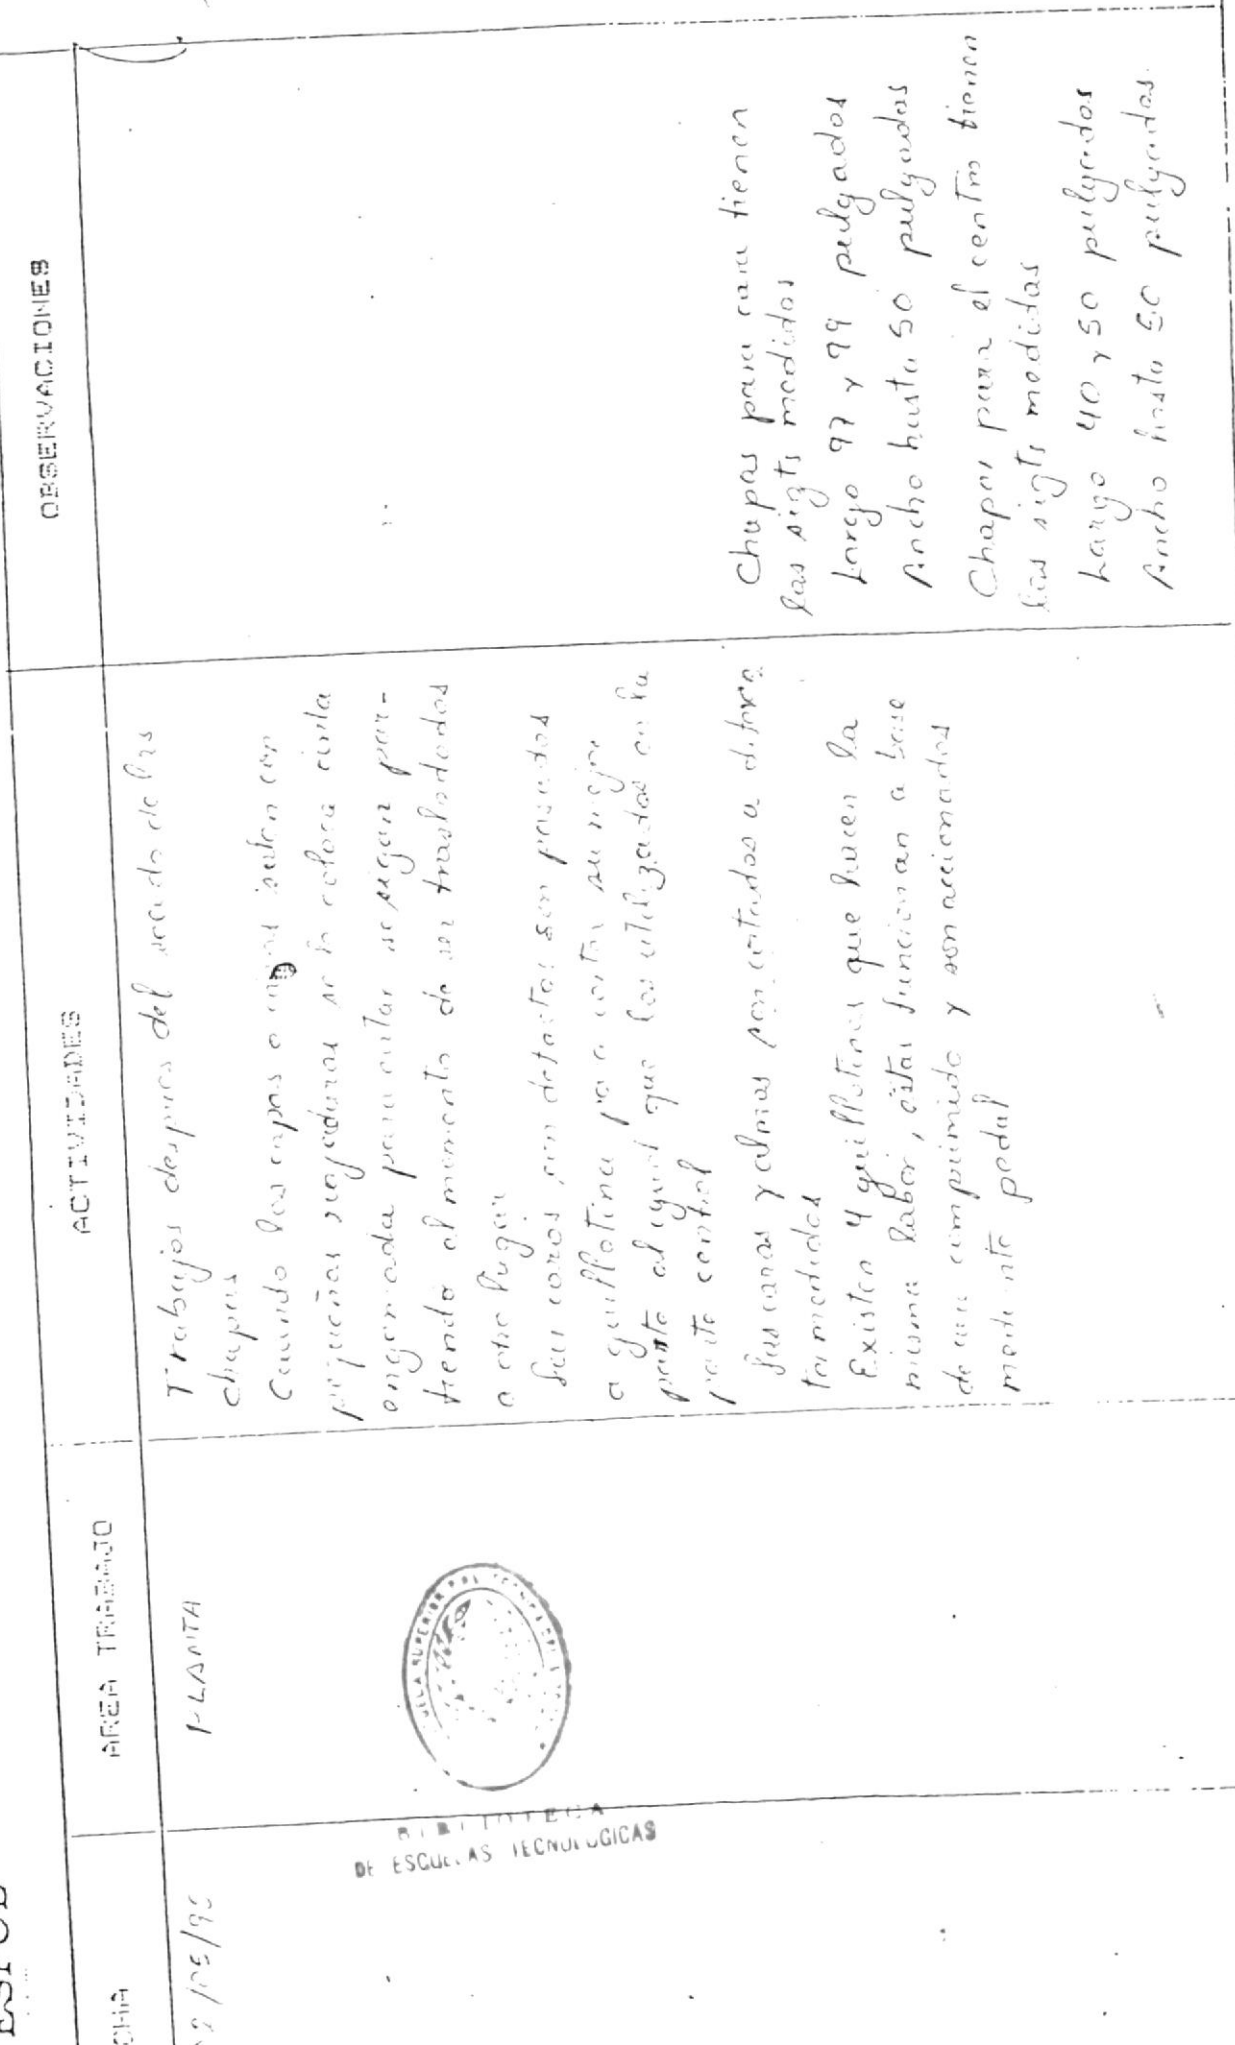 ESPOL
CHA
AREA TRABAJO
ACTIVIDADES
OBSERVACIONES
/05/95
PLANTA
Trabajos despues del secado de las
chapas
Cuando las capas o salen con
pequeñas rajaduras se le coloca cinta
engomada para evitar se sigan par-
tiendo al momento de ser trasladados
a otro lugar
Las caras con defectos son pasados
a guillotina para cortar su mejor
parte al igual que las utilizadas en la
parte central
Las caras y almas son cortados a difere
tes medidas
Existen 4 guillotinas que hacen la
misma labor, éstas funcionan a base
de aire comprimido y son accionados
mediante pedal
Chapas para cara tienen
las sigts medidas
Largo 97 y 99 pulgadas
Ancho hasta 50 pulgadas
Chapas para el centro tienen
las sigts medidas
Largo 40 y 50 pulgadas
Ancho hasta 50 pulgadas.
ELA SUPERIOR
BIBLIOTECA
DE ESCUELAS TECNOLOGICAS